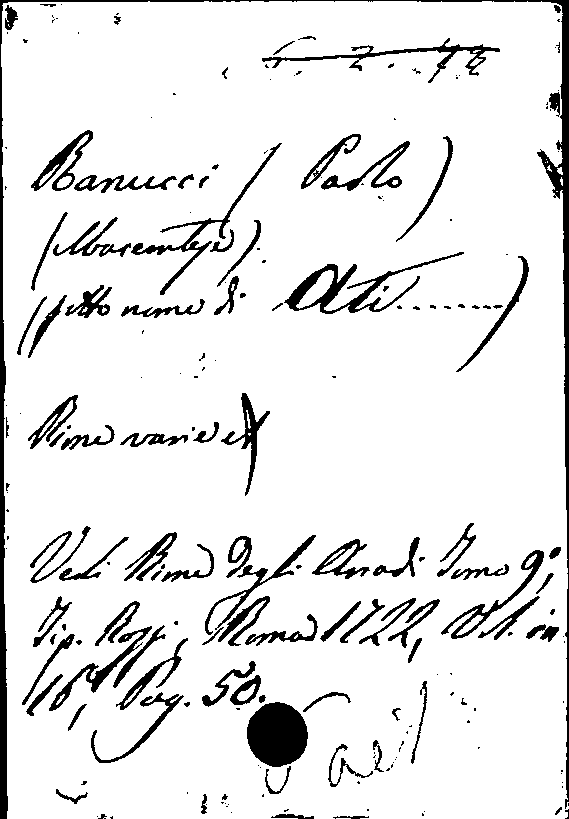 6. 2. 42
Ranucci (Paolo)
(Maceratese)
(sotto nome di Ati.........)
Rime varie
Vedi Rime degli Arcadi Tomo 9º,
Tip. Rossi, Roma 1722, Vol. in
16º, Pag. 50.